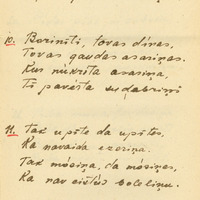 10. Boriniti, tovas dinas,
Tovas gaudas asariņas.
Kur nūkrita asariņa,
Ti pavēra sudabriņi
11. Tak upīte da upītes,
Ka navaida ezeriņa.
Tak mōsiņa, da mōsiņas,
Ka nav eistūs boleliņu.